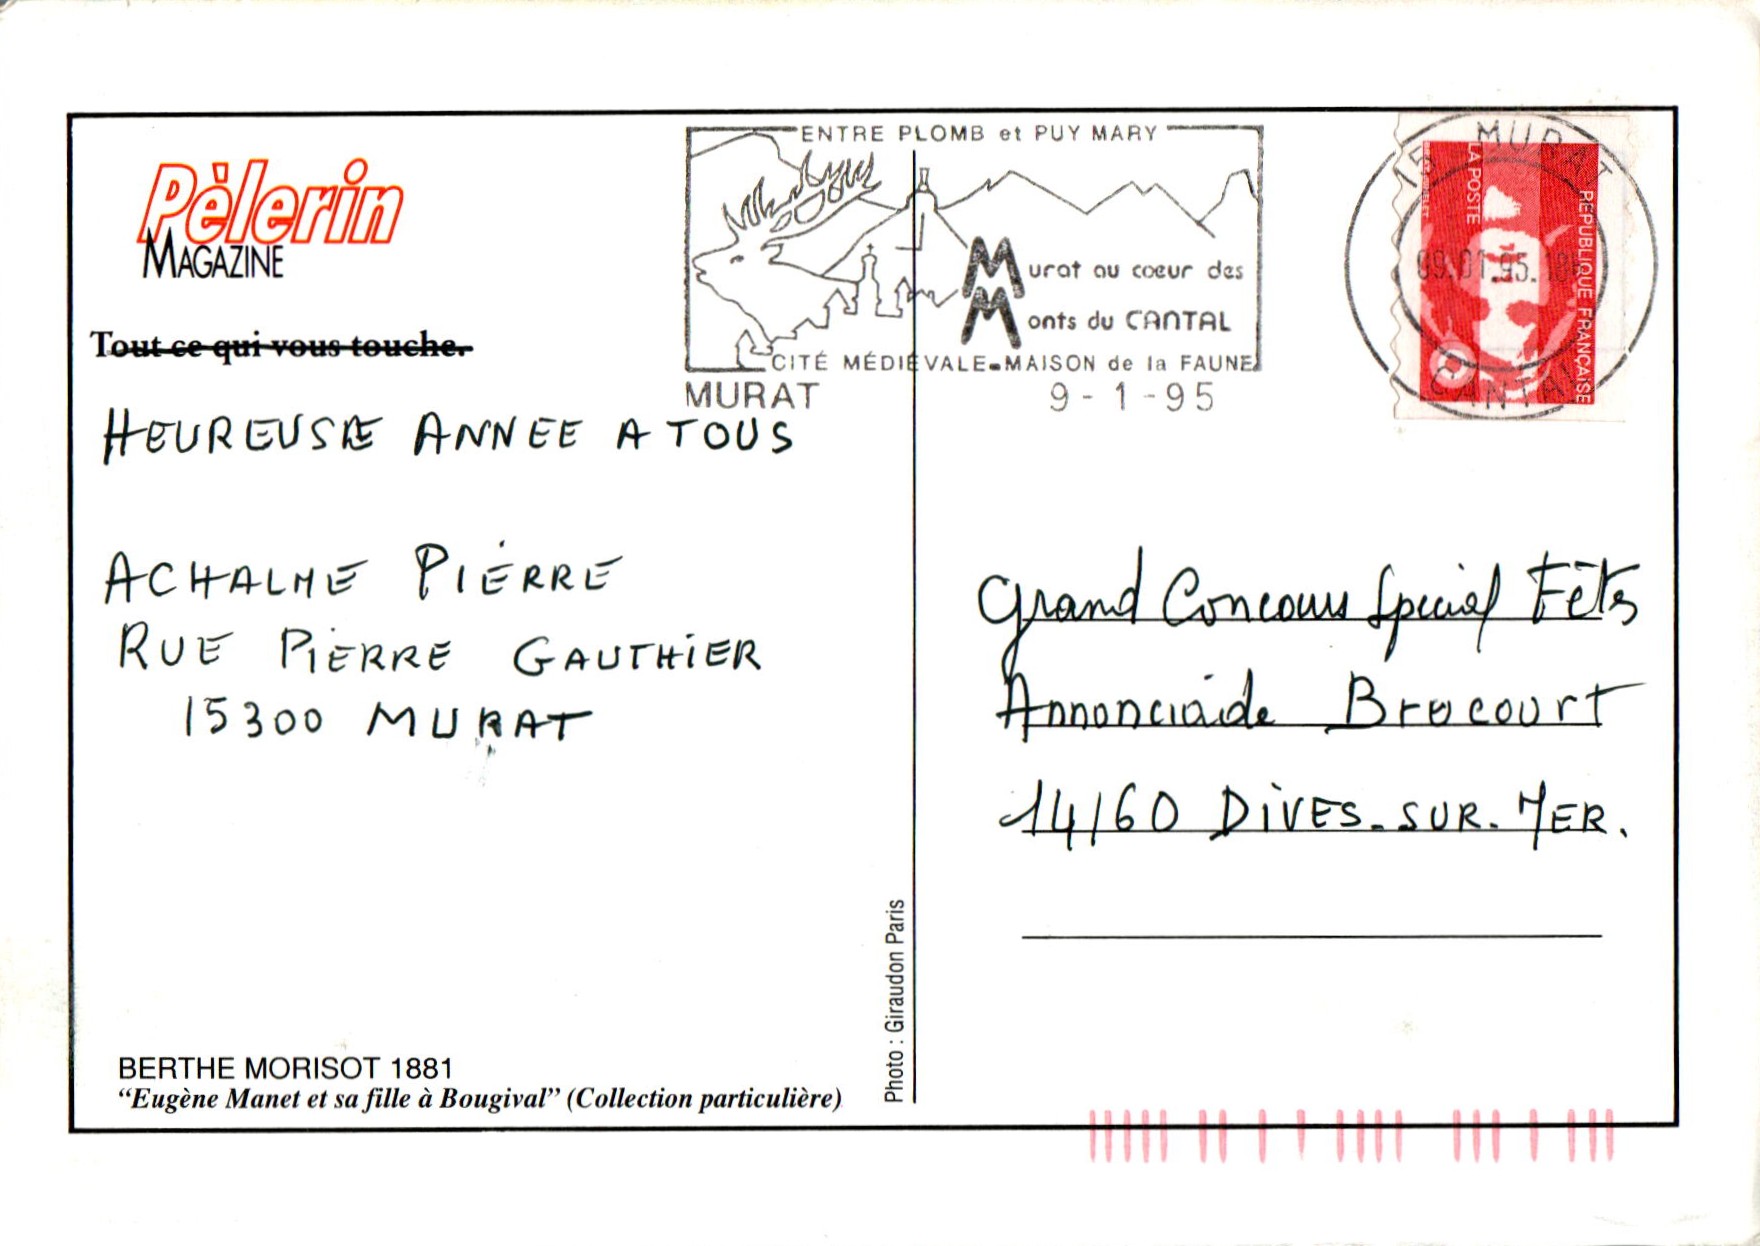 Pèlerin
MAGAZINE
Tout ce qui vous touche.
HEUREUSE ANNEE A TOUS
ACHALME PIERRE
RUE PIERRE GAUTHIER
15300 MURAT
BERTHE MORISOT 1881
“Eugène Manet et sa fille à Bougival” (Collection particulière)
Photo : Giraudon Paris
ENTRE PLOMB et PUY MARY
Murat au coeur des
Monts du CANTAL
CITÉ MÉDIÉVALE-MAISON de la FAUNE
MURAT 9-1-95
15 MURAT
09.01.95.
CANTAL
LA POSTE
REPUBLIQUE FRANÇAISE
Grand Concours Special Fêtes
Annonciade Brocourt
14160 DIVES-SUR-MER.